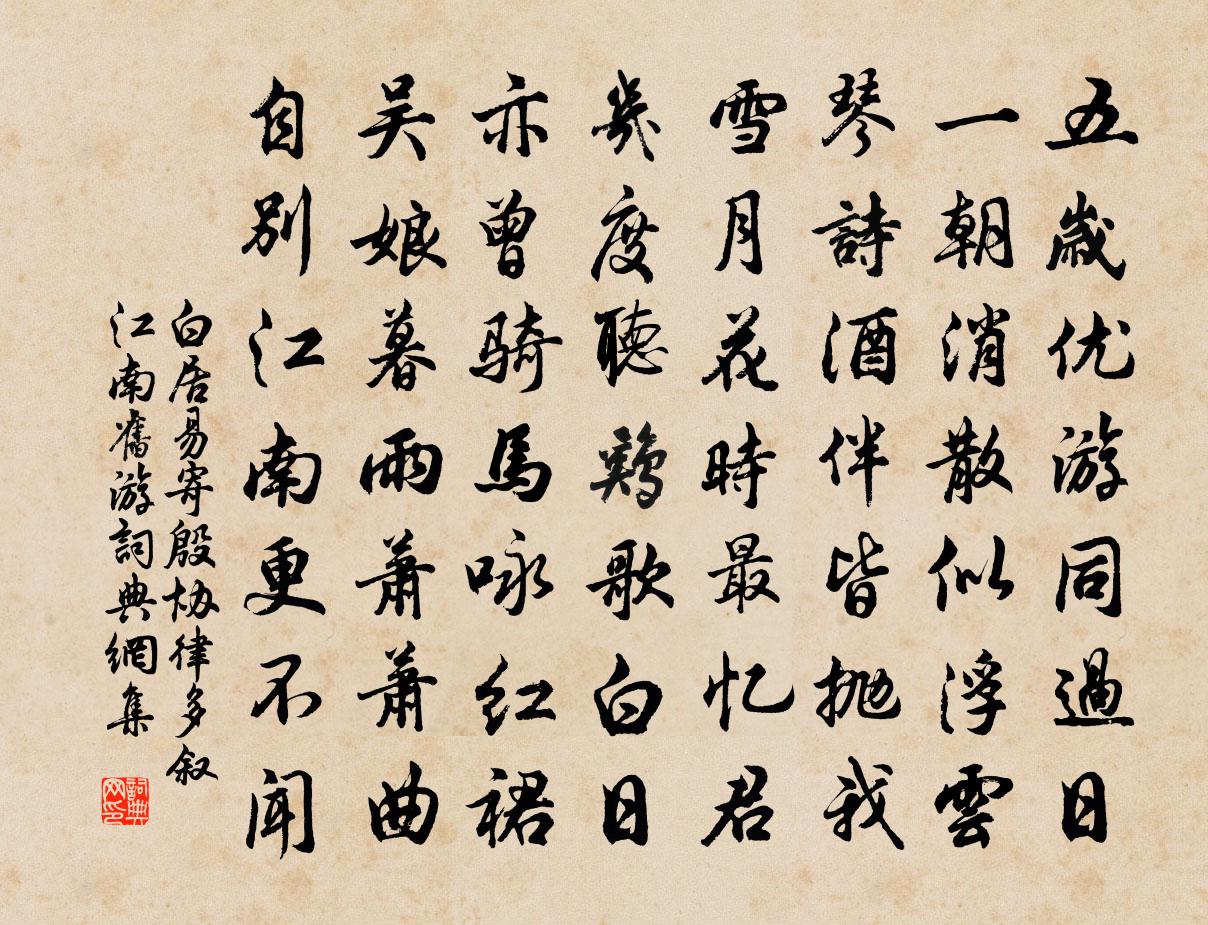 五歲优游同過日
一朝消散似浮雲
琴詩酒伴皆抛我
雪月花時最忆君
幾度聽鷄歌白日
亦曾骑馬咏红裙
吴娘暮雨萧萧曲
自别江南更不闻
白居易寄殷协律多叙
江南舊游詞典網集
詞典
网印